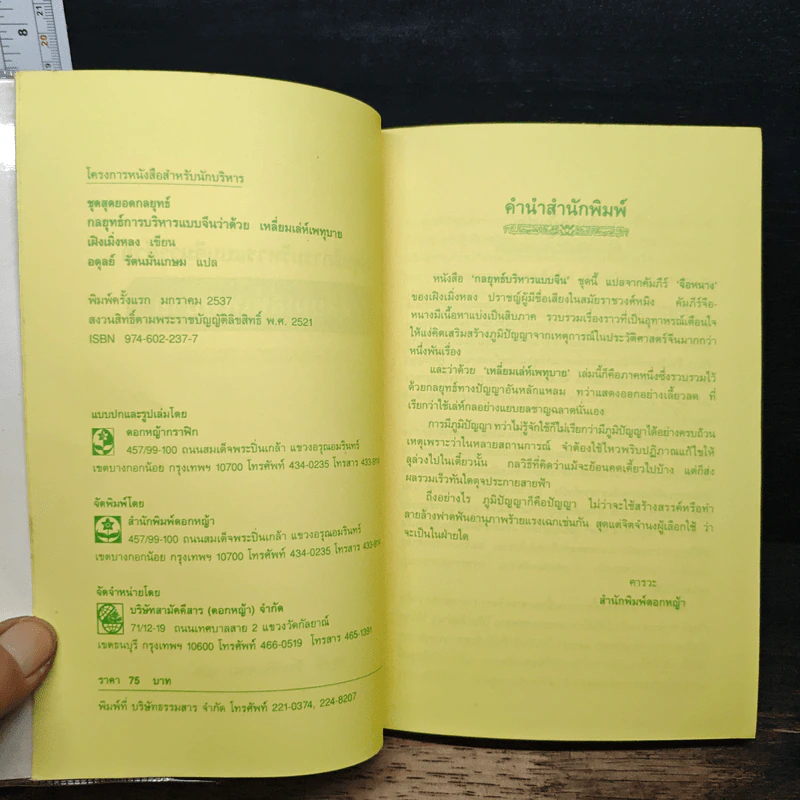 8
20
21
โครงการหนังสือสำหรับนักบริหาร
ชุดสุดยอดกลยุทธ์
กลยุทธ์การบริหารแบบจีนว่าด้วย เหลี่ยมเล่ห์เพทุบาย
เฝิงเมิ่งหลง เขียน
อดุลย์ รัตนมั่นเกษม แปล
พิมพ์ครั้งแรก มกราคม 2537
สงวนสิทธิ์ตามพระราชบัญญัติลิขสิทธิ์ พ.ศ. 2521
ISBN 974-602-237-7
แบบปกและรูปเล่มโดย
ดอกหญ้ากราฟิก
457/99-100 ถนนสมเด็จพระปิ่นเกล้า แขวงอรุณอมรินทร์
เขตบางกอกน้อย กรุงเทพฯ 10700 โทรศัพท์ 434-0235 โทรสาร
จัดพิมพ์โดย
สำนักพิมพ์ดอกหญ้า
457/99-100 ถนนสมเด็จพระปิ่นเกล้า แขวงอรุณอมรินทร์
เขตบางกอกน้อย กรุงเทพฯ 10700 โทรศัพท์ 434-0235 โทรสาร
จัดจำหน่ายโดย
บริษัทสามัคคีสาร (ดอกหญ้า) จำกัด
71/12-19 ถนนเทศบาลสาย 2 แขวงวัดกัลยาณ์
เขตธนบุรี กรุงเทพฯ 10600 โทรศัพท์ 466-0519 โทรสาร
ราคา 75 บาท
พิมพ์ที่ บริษัทธรรมสาร จำกัด โทรศัพท์ 221-0374, 224-8207
คำนำสำนักพิมพ์
หนังสือ 'กลยุทธ์บริหารแบบจีน' ชุดนี้ แปลจากคัมภีร์ 'จือหนาง'
ของเฝิงเมิ่งหลง ปราชญ์ผู้มีชื่อเสียงในสมัยราชวงศ์หมิง คัมภีร์จือ-
หนางมีเนื้อหาแบ่งเป็นสิบภาค รวบรวมเรื่องราวที่เป็นอุทาหรณ์เตือนใจ
ให้แง่คิดเสริมสร้างภูมิปัญญาจากเหตุการณ์ในประวัติศาสตร์จีนมากกว่า
หนึ่งพันเรื่อง
และว่าด้วย 'เหลี่ยมเล่ห์เพทุบาย' เล่มนี้ก็คือภาคหนึ่งซึ่งรวบรวมไว้
ด้วยกลยุทธ์ทางปัญญาอันหลักแหลม ทว่าแสดงออกอย่างเลี้ยวลด ที่
เรียกว่าใช้เล่ห์กลอย่างแยบยลชาญฉลาดนั่นเอง
การมีภูมิปัญญา ทว่าไม่รู้จักใช้ก็ไม่เรียกว่ามีภูมิปัญญาได้อย่างครบถ้วน
เหตุเพราะว่าในหลายสถานการณ์ จำต้องใช้ไหวพริบปฏิภาณแก้ไขให้
ลุล่วงไปในเดี๋ยวนั้น กลวิธีที่คิดว่าแม้จะย้อนคดเคี้ยวไปบ้าง แต่ก็ส่ง
ผลรวมเร็วทันใดดุจประกายสายฟ้า
ถึงอย่างไร ภูมิปัญญาก็คือปัญญา ไม่ว่าจะใช้สร้างสรรค์หรือทำ
ลายล้างฟาดฟันอานุภาพร้ายแรงเฉกเช่นกัน สุดแต่จิตจำนงผู้เลือกใช้ ว่า
จะเป็นในฝ่ายใด
คารวะ
สำนักพิมพ์ดอกหญ้า